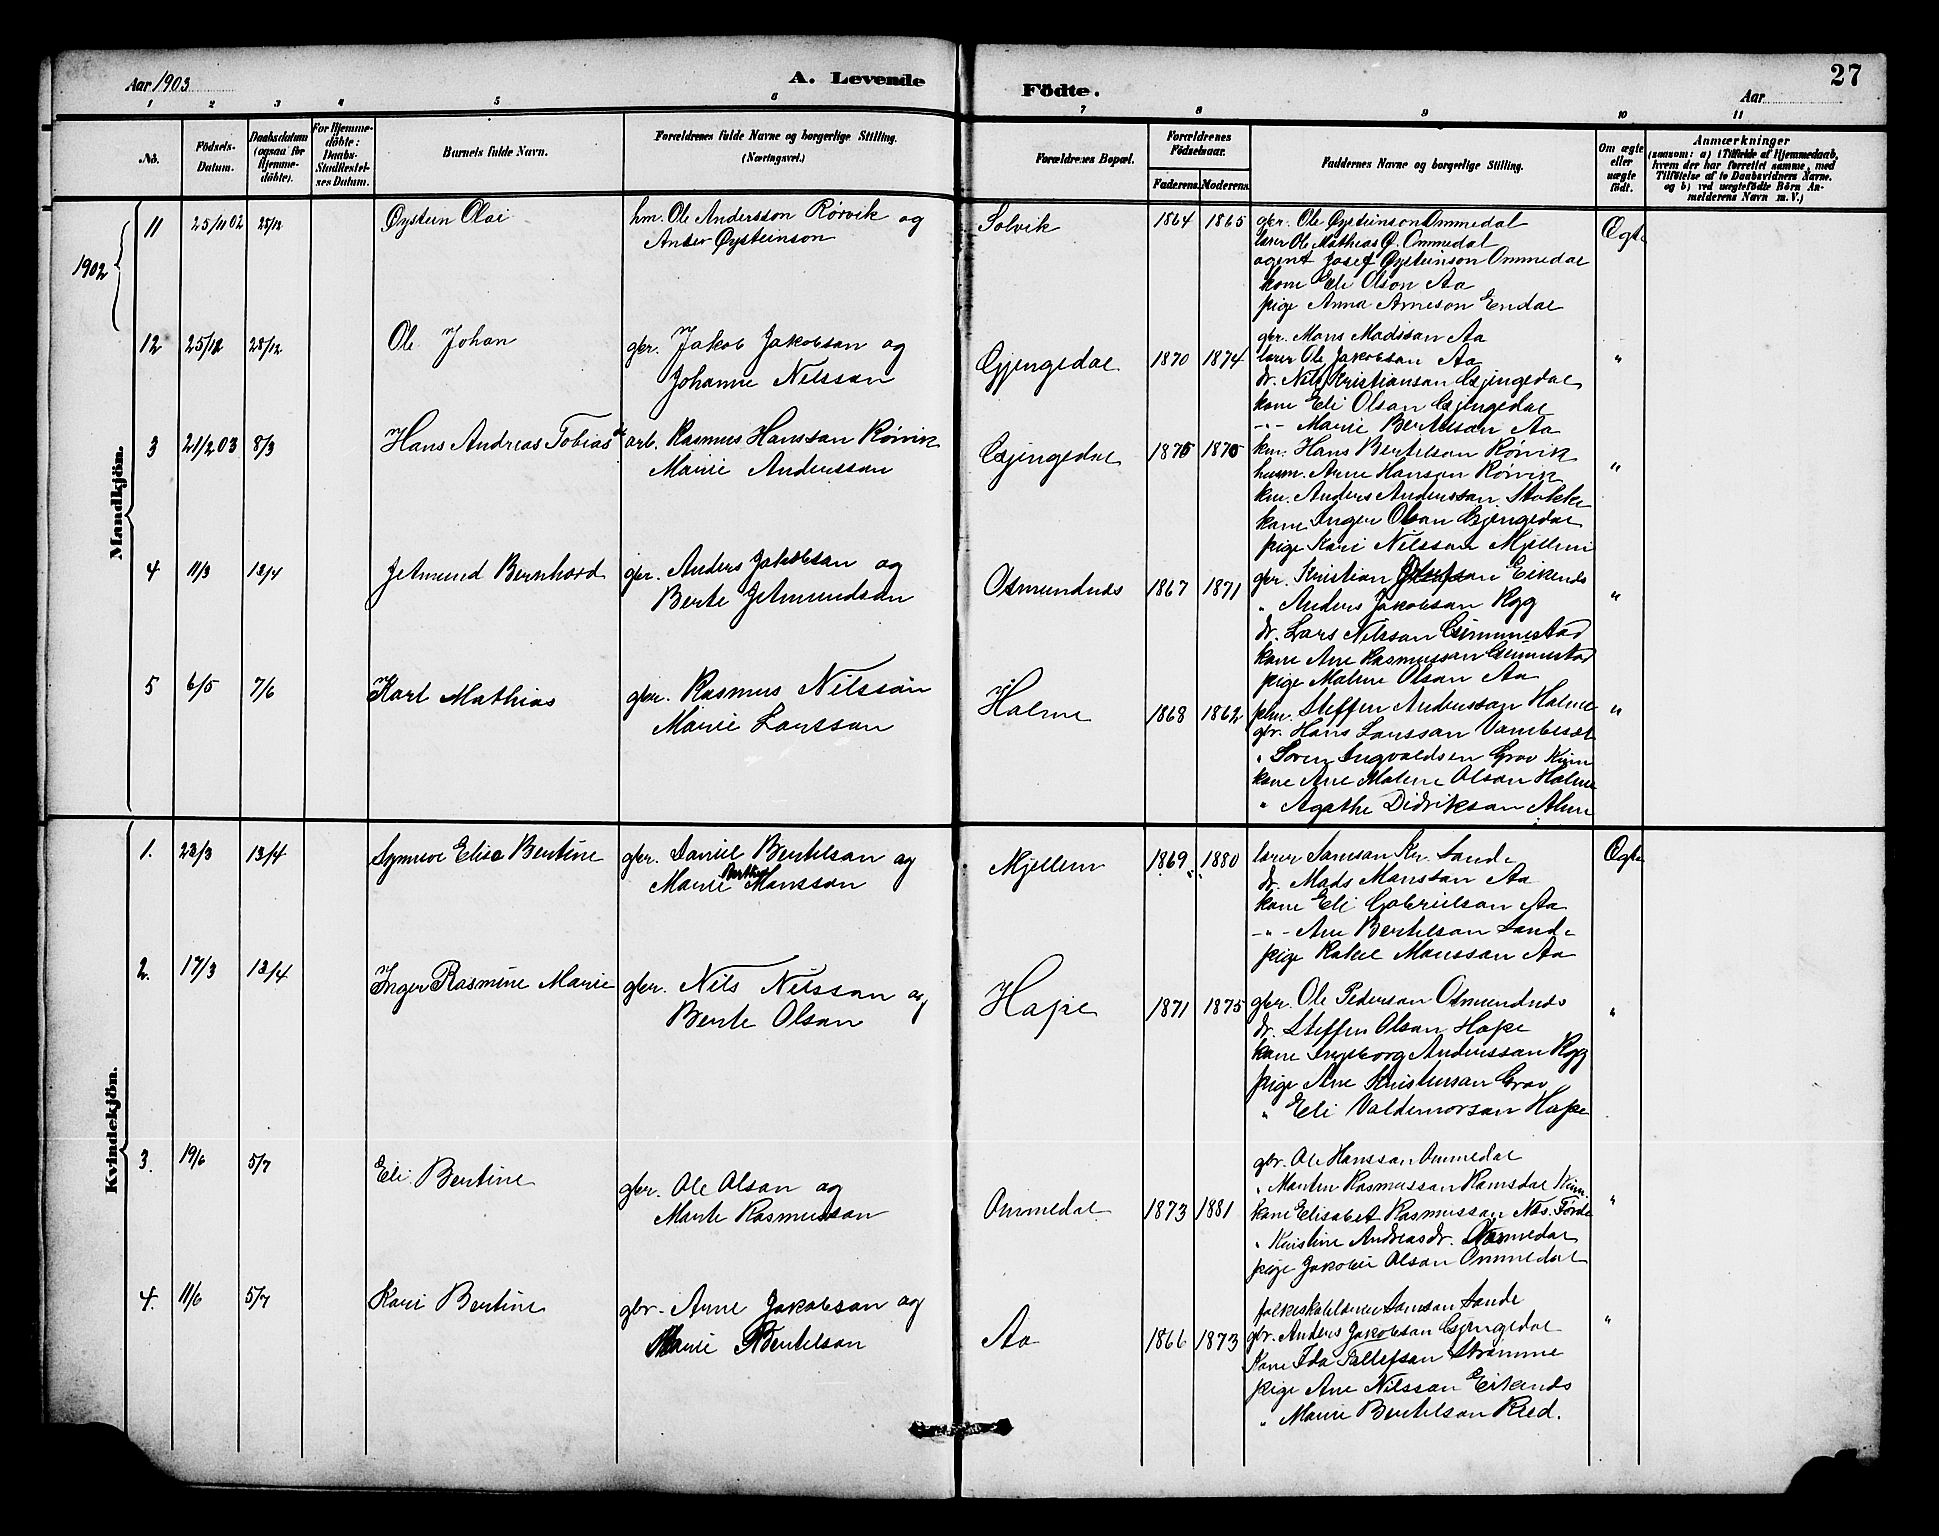 Aar 1903
A. Levende
Födte.
Aar
27
1 2 3 4 5 6 7 8 9 10 11
No.
Födsels-Datum.
Daabsdatum (ogsaa for Hjemme-döbte).
For Hjemme-döbte: Daabs-Stadfæstel-ses Datum.
Barnets fulde Navn.
Forældrenes fulde Navne og borgerlige Stilling.
(Næringsvei.)
Forældrenes Bopæl.
Forældrenes Födselsaar.
Faderens. Moderens.
Faddernes Navne og borgerlige Stilling.
Om ægte eller uægte födt.
Anmærkninger
(saasom: a) i Tilfælde af Hjemmedaab,
hvem der har forrettet samme, med
Tilföielse af to Daabsvidners Navne,
og b) ved uægtefödte Börn An-
melderens Navn m. V.)
1902
Mandkjön.
11 25/11 02 28/12 Øystein Olai hm. Ole Andersson Rørvik og
Anter Øysteinson
Solvik 1864 1865 gbr. Ole Øysteinson Ommedal Ægte
lærer Ole Mathias Ø. Ommedal
agent Josef Øysteinson Ommedal
kone Eli Olson Aa
pige Anna Arneson Endal
12 25/12 28/12 Ole Johan gbr. Jakob Jakobson og
Johanne Nilsson
Gjengedal 1870 1874 gbr. Mons Madsson Aa "
lærer Ole Jakobson Aa
dr. Nils Kristianson Gjengedal
kone Eli Olson Gjengedal
-"- Marie Bertelson Aa
3 21/2 03 8/3 Hans Andreas Tobias arb. Rasmus Hansson Rørvik
Marie Andersson
Gjengedal 1875 1875 km. Hans Bertelson Rørvik "
husm. Arne Hanson Rørvik
km. Anders Andersson Stokke
kone Inger Olson Gjengedal
pige Kari Nilsson Mjellem
4 11/3 13/4 Jetmund Bernhard gbr. Anders Jakobson og
Berte Jetmundson
Osmundnes 1867 1871 gbr. Kristian Eikenes "
" Anders Jakobson Rygg
dr. Lars Nilsson Gimmestad
kone Ane Rasmusson Gimmestad
pige Malene Olson Aa
5 6/5 7/6 Karl Mathias gbr. Rasmus Nilsson
Marie Larsson
Holme 1868 1862 Steffen Andersson Holme "
gbr. Hans Larsson Vambeset
" Søren Ingvaldsen Grov Kinn
kone Ane Malene Olson Holme
" Agathe Didrikson Alme
Kvindekjön.
1. 23/3 13/4 Synneve Elise Bertine gbr. Daniel Bertelson og
Marie Berthe Monsson
Mjellem 1869 1880 lærer Samson Kr. Sande Ægte
dr. Mads Monsson Aa
kone Eli Gabrielson Aa
-"- Ane Bertelson Sande
pige Rakel Monsson Aa
2. 17/3 13/4 Inger Rasmine Marie gbr. Nils Nilsson og
Berte Olson
Hope 1871 1875 gbr. Ole Pederson Osmundnes "
dr. Steffen Olson Hope
kone Ingeborg Andersson Rygg
pige Ane Kristenson Grov
" Eli Valdemarson Hope
3. 19/6 5/7 Eli Bertine gbr. Ole Olson og
Marte Rasmusson
Ommedal 1873 1881 gbr. Ole Hansson Ommedal "
" Morten Rasmusson Ramsdal Kinn
kone Elisabet Rasmusson Nes. Førde
" Kristine Andreasdr. Ommedal
pige Jakobie Olson Ommedal
4. 11/6 5/7 Kari Bertine gbr. Arne Jakobson og
Marie Bertelson
Aa 1866 1873 folkeskolelærer Samson Sande "
gbr. Anders Jakobson Gjengedal
kone Ida Tollefson Strømme
pige Ane Nilsson Eikenes
" Marie Bertelson Reed.